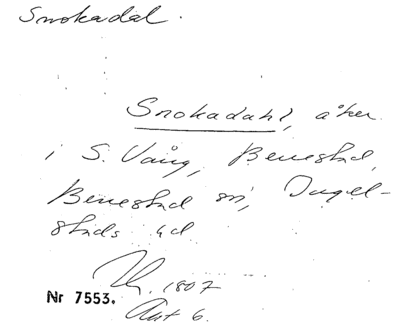 Snokadal.
Snokadahl, åker
i S. Vång, Benestad,
Benestad sn, Ingel-
stads hd
1807
Nr 7553.
Akt 6.